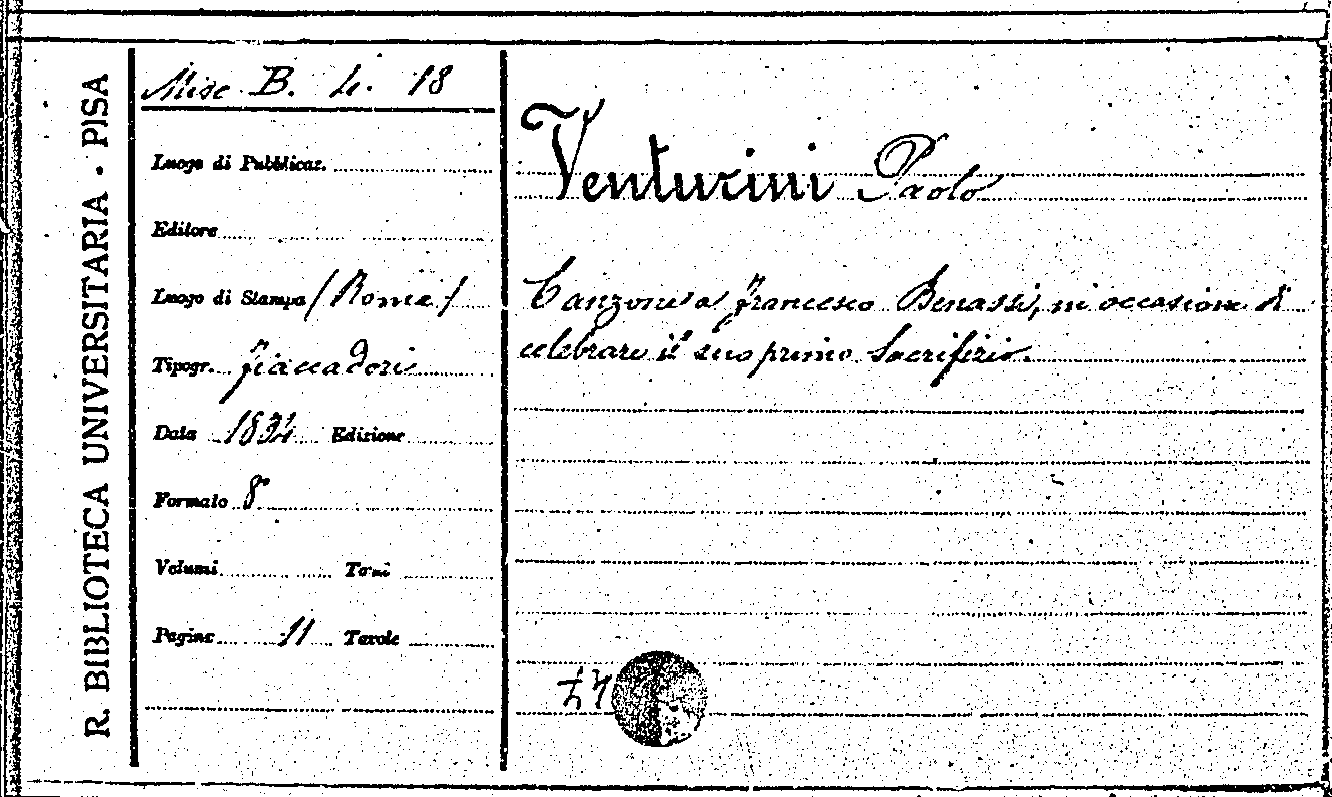 R. BIBLIOTECA UNIVERSITARIA · PISA
Misc. B. 4. 18
Luogo di Pubblicaz.
Editore
Luogo di Stampa (Roma)
Tipogr. Fiaccadori
Data 1834 Edizione
Formato 8°
Volumi Tomi
Pagine 11 Tavole
Venturini Paolo
Canzone a Francesco Benassi, in occasione di
celebrare il suo primo Sacrifizio.